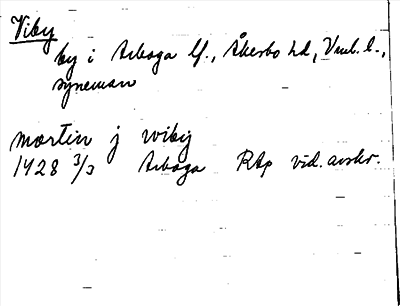 Viby
by i Arboga lf., Åkerbo hd, Vml. l.,
syneman
martin j wiby
1428 3/3 Arboga RAp vid. avskr.